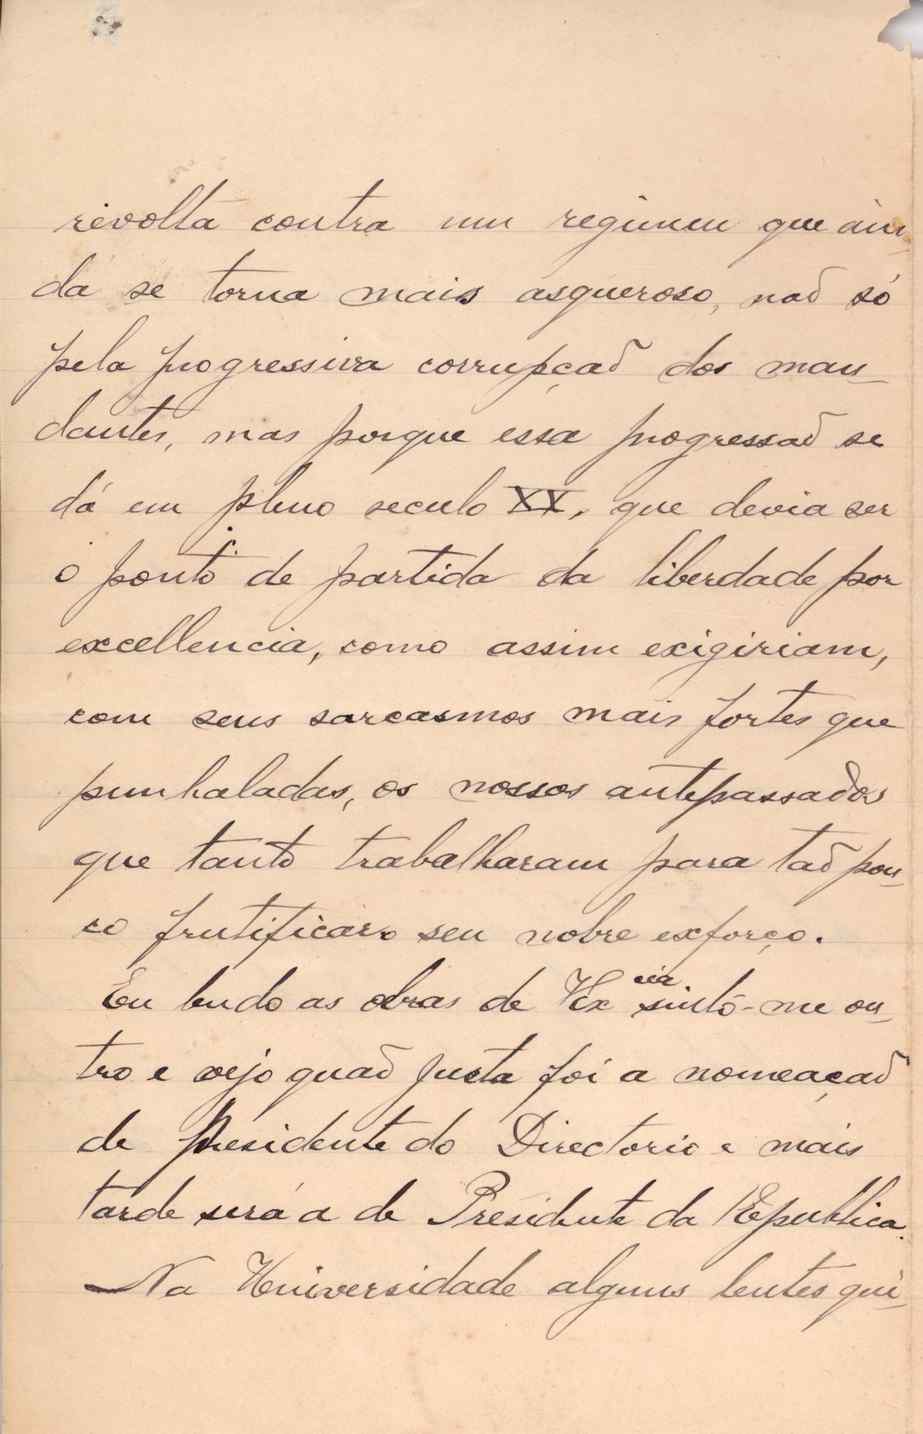 revolta contra um regimen que ain-
da se torna mais asqueroso, naõ só
pela progressiva corrupçaõ dos man-
dantes, mas porque essa progressaõ se
dá em pleno seculo XX, que devia ser
o ponto de partida da liberdade por
excellencia, como assim exigiriam,
com seus sarcasmos mais fortes que
punhaladas, os nossos antepassados
que tanto trabalharam para taõ pou-
co frutificar o seu nobre exforço.
Eu lendo as obras de V Ex cia sinto-me ou-
tro e vejo quaõ justa foi a nomeaçaõ
de Presidente do Directorio e mais
tarde será a de Presidente da Republica.
Na Universidade alguns lentes qui-